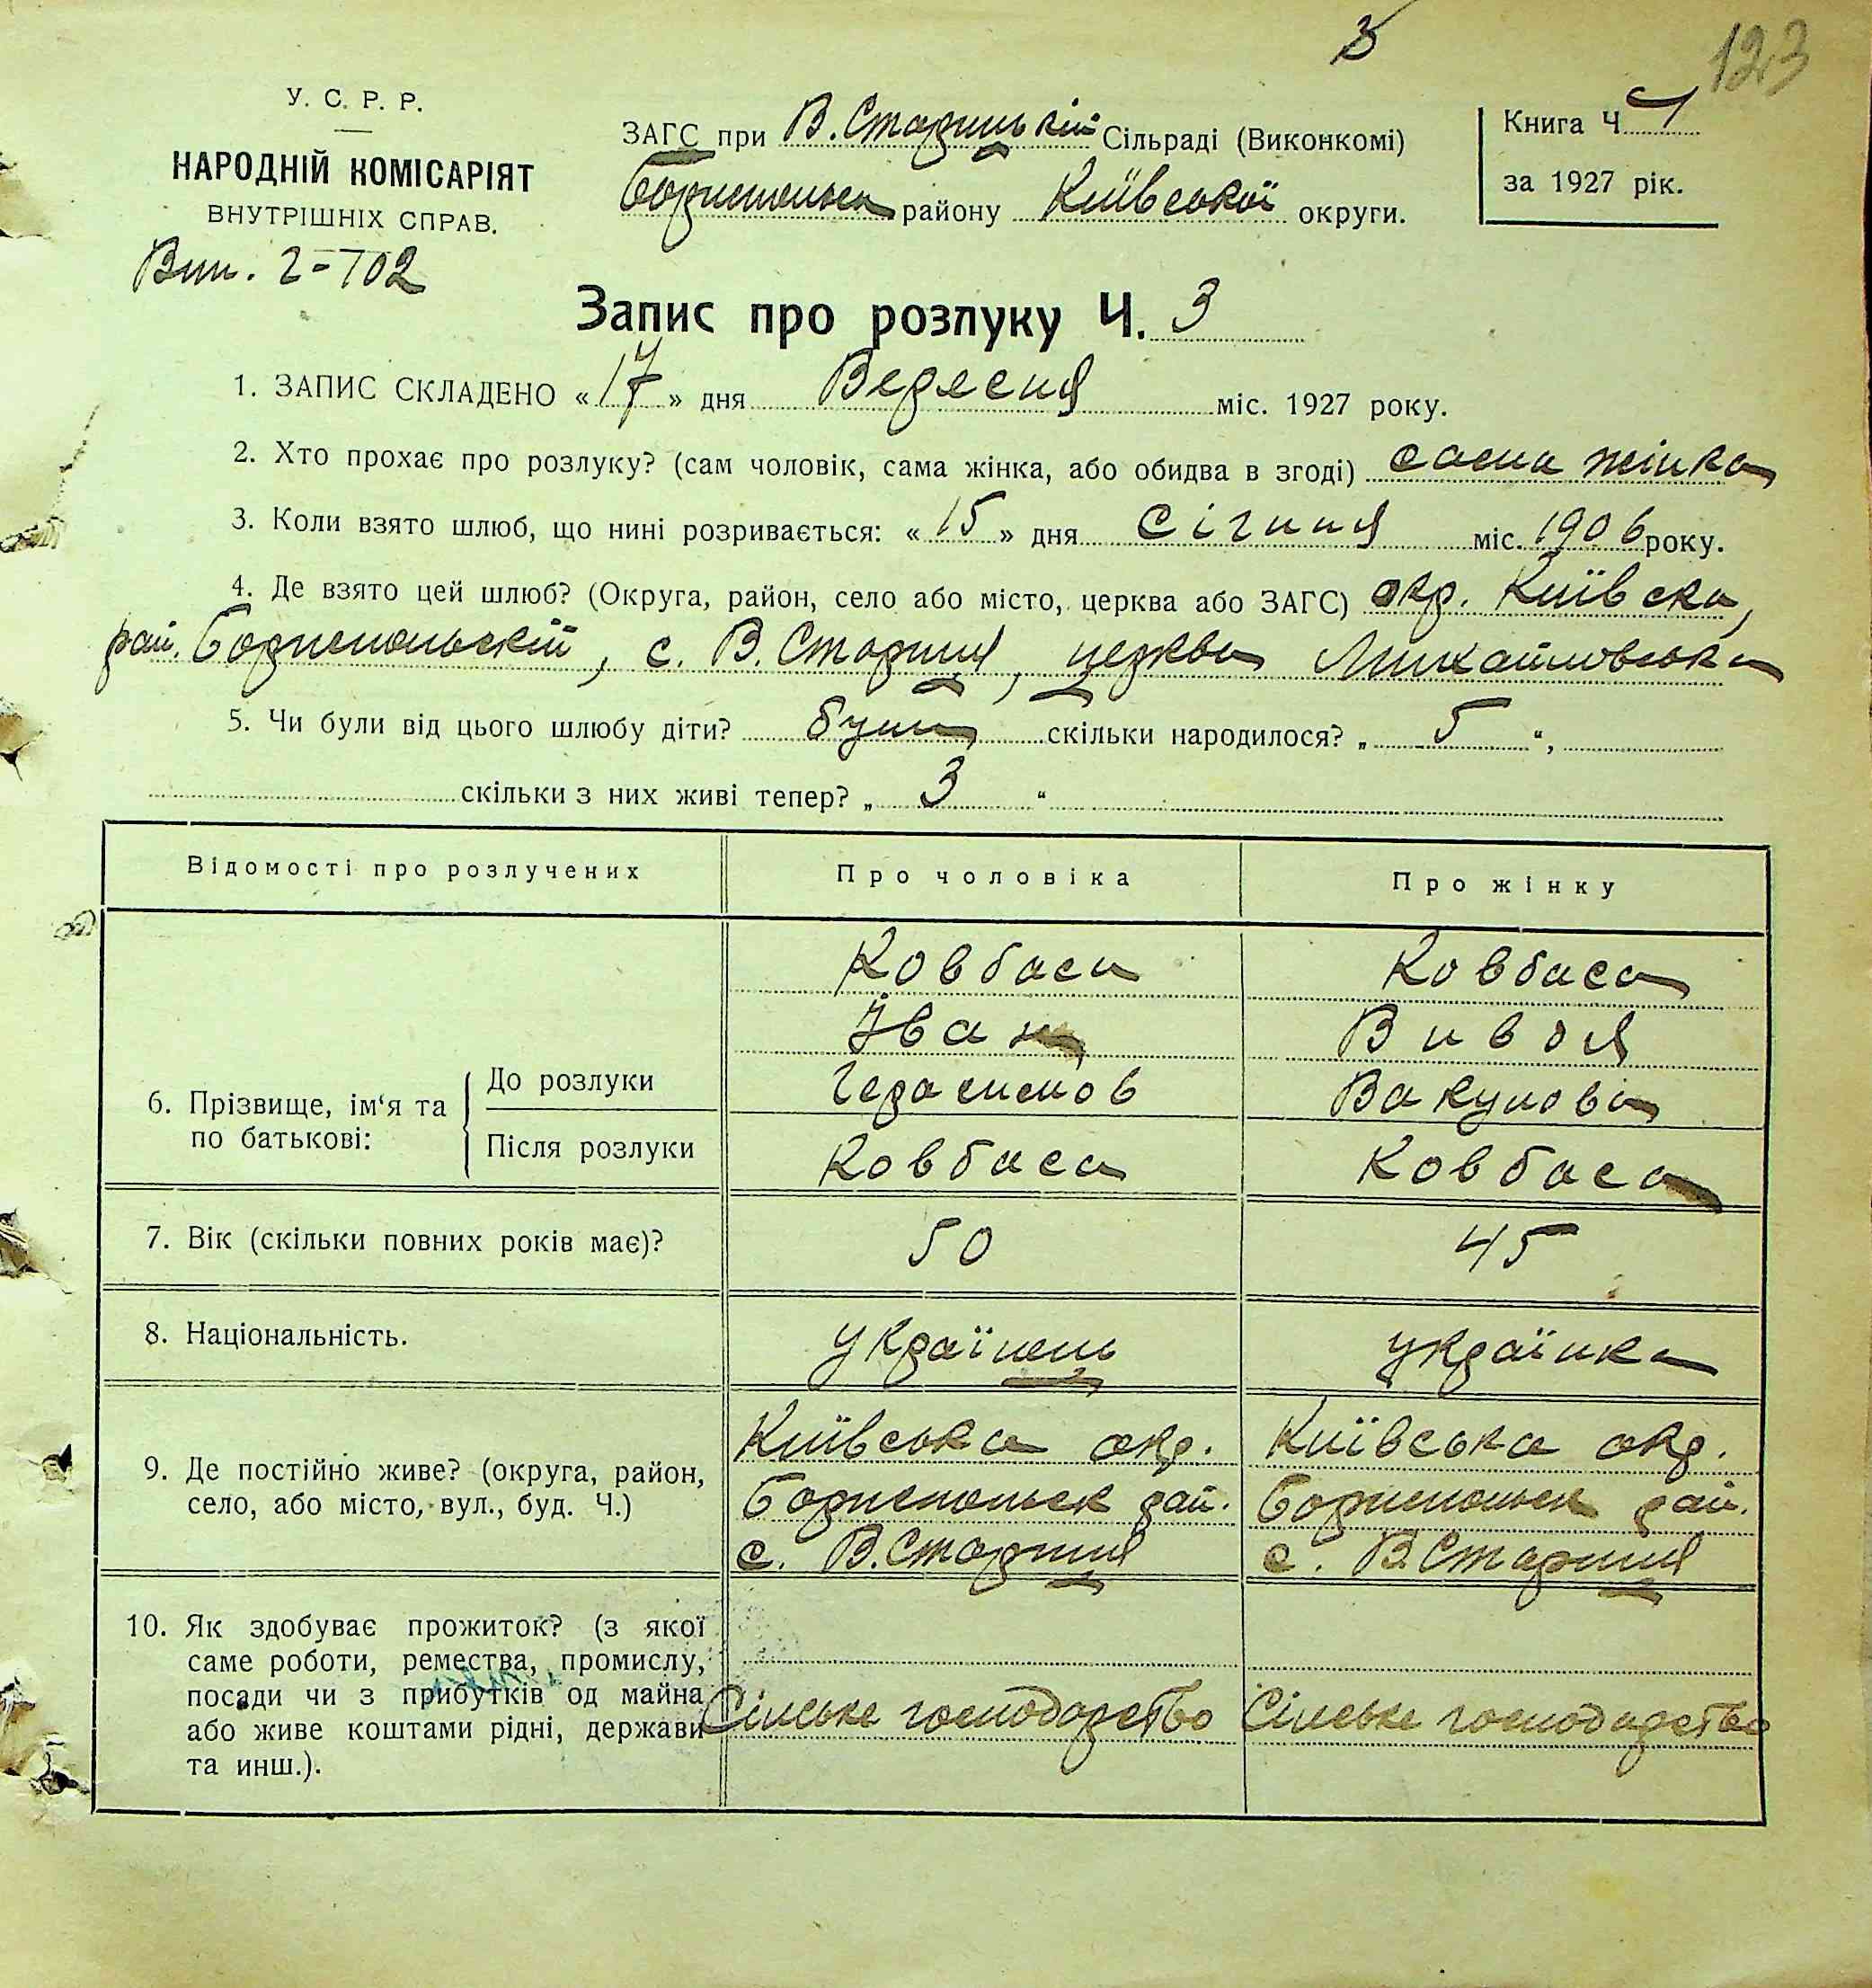 3
123
У. С. Р. Р.
НАРОДНІЙ КОМІСАРІЯТ
ВНУТРІШНІХ СПРАВ.
Вип. 2-702
ЗАГС при В. Старицькій Сільраді (Виконкомі)
Бориспольск району Київської округи.
Книга Ч.
за 1927 рік.
Запис про розлуку Ч. 3
1. ЗАПИС СКЛАДЕНО «17» дня Вересня міс. 1927 року.
2. Хто прохає про розлуку? (сам чоловік, сама жінка, або обидва в згоді) сама жінка
3. Коли взято шлюб, що нині розривається: «15» дня Січния міс. 1906 року.
4. Де взято цей шлюб? (Округа, район, село або місто, церква або ЗАГС) окр. Київска,
рай. Бориспольскій, с. В. Стариця, церква Михайловська
5. Чи були від цього шлюбу діти? були скільки народилося? „ 5 “,
скільки з них живі тепер? „ 3 “
Відомості про розлучених
Про чоловіка
Про жінку
6. Прізвище, ім‘я та
по батькові:
До розлуки
Після розлуки
Ковбаса
Іван
Герасимов
Ковбаса
Ковбаса
Вивдя
Вакулова
Ковбаса
7. Вік (скільки повних років має)?
50
45
8. Національність.
українець
українка
9. Де постійно живе? (округа, район,
село, або місто, вул., буд. Ч.)
Київська окр.
Бориспольск рай.
с. В. Стариця
Київська окр.
Бориспольск рай.
с. В. Стариця
10. Як здобуває прожиток? (з якої
саме роботи, ремества, промислу,
посади чи з прибутків од майна
або живе коштами рідні, держави
та инш.).
Сільське господарство
Сільське господарство